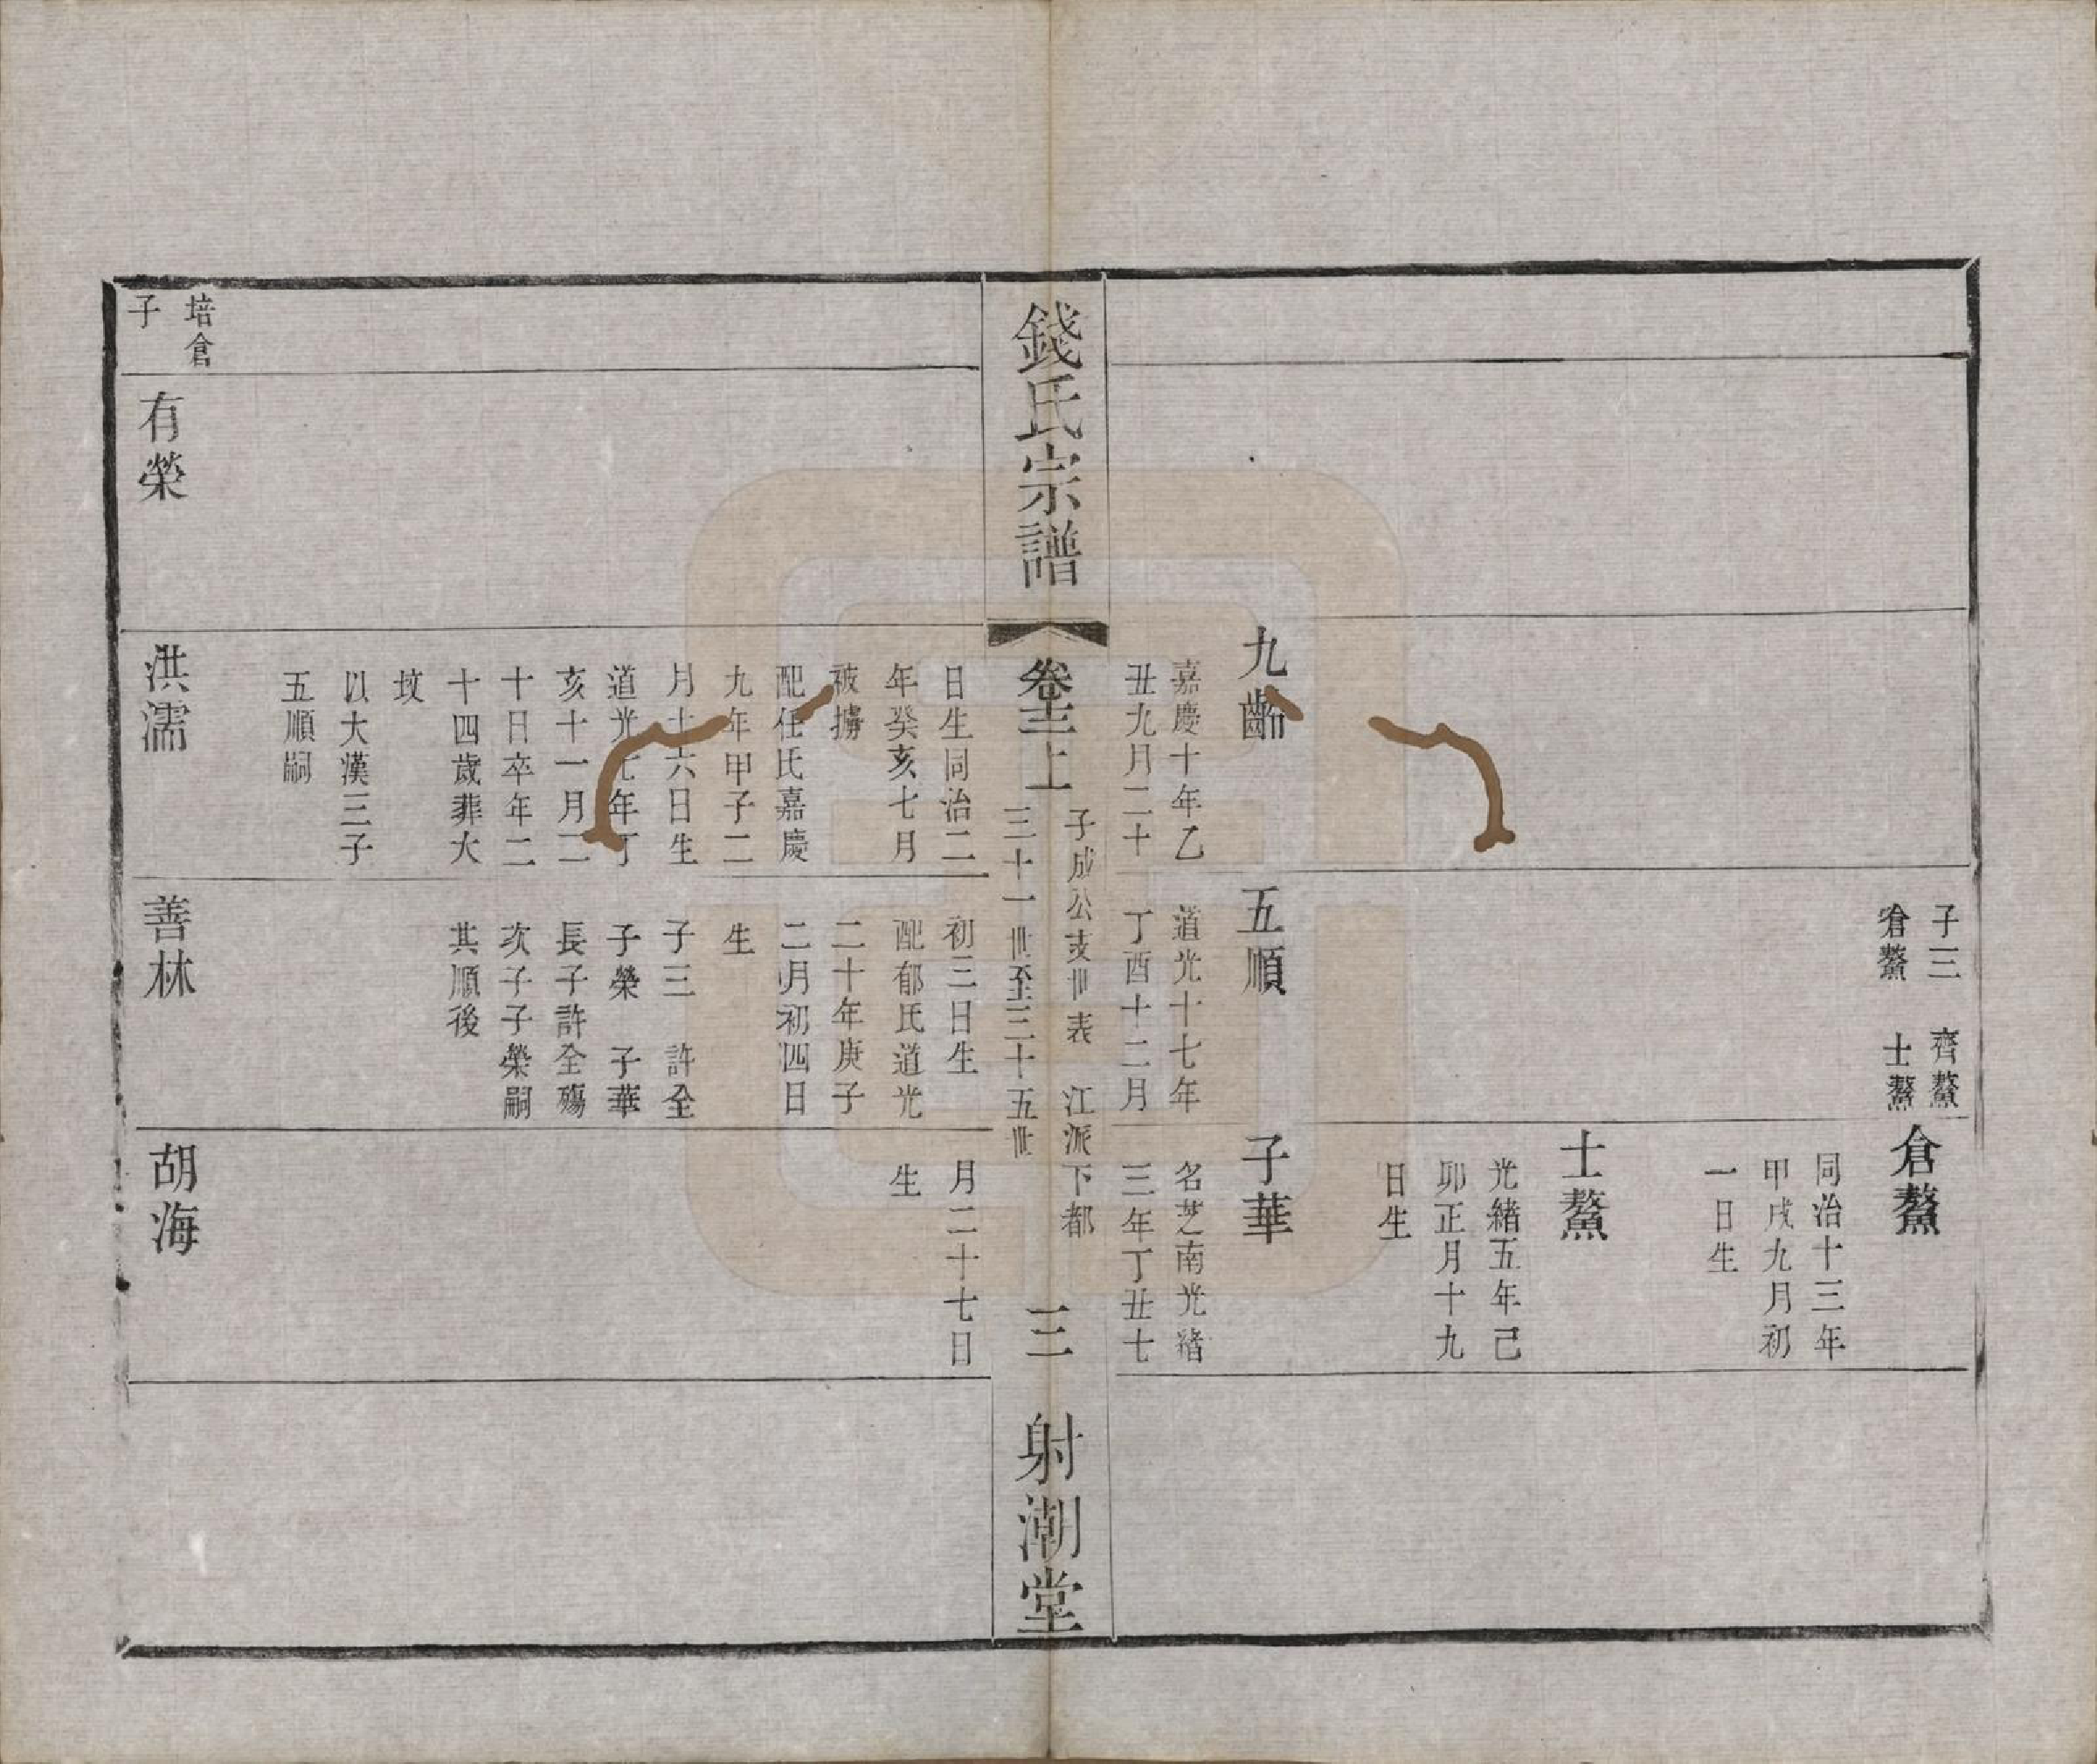 子三　齊鰲
倉鰲　士鰲
倉鰲
同治十三年
甲戌九月初
一日生
士鰲
光緒五年己
卯正月十九
日生
九齡
嘉慶十年乙
丑九月二十
五順
道光十七年
丁酉十二月
子華
名芝南光緒
三年丁丑七
錢氏宗譜
卷十三上
子成公支世表　江派下都
三十一世至三十五世
三
射潮堂
日生同治二
年癸亥七月
被擄
配任氏嘉慶
九年甲子二
月十六日生
道光七年丁
亥十一月二
十日卒年二
十四歲葬大
坟
以大漢三子
五順嗣
初三日生
配郁氏道光
二十年庚子
二月初四日
生
子三　許全
子榮　子華
長子許全殤
次子子榮嗣
其順後
月二十七日
生
培倉
子
有榮
洪濡
善林
胡海